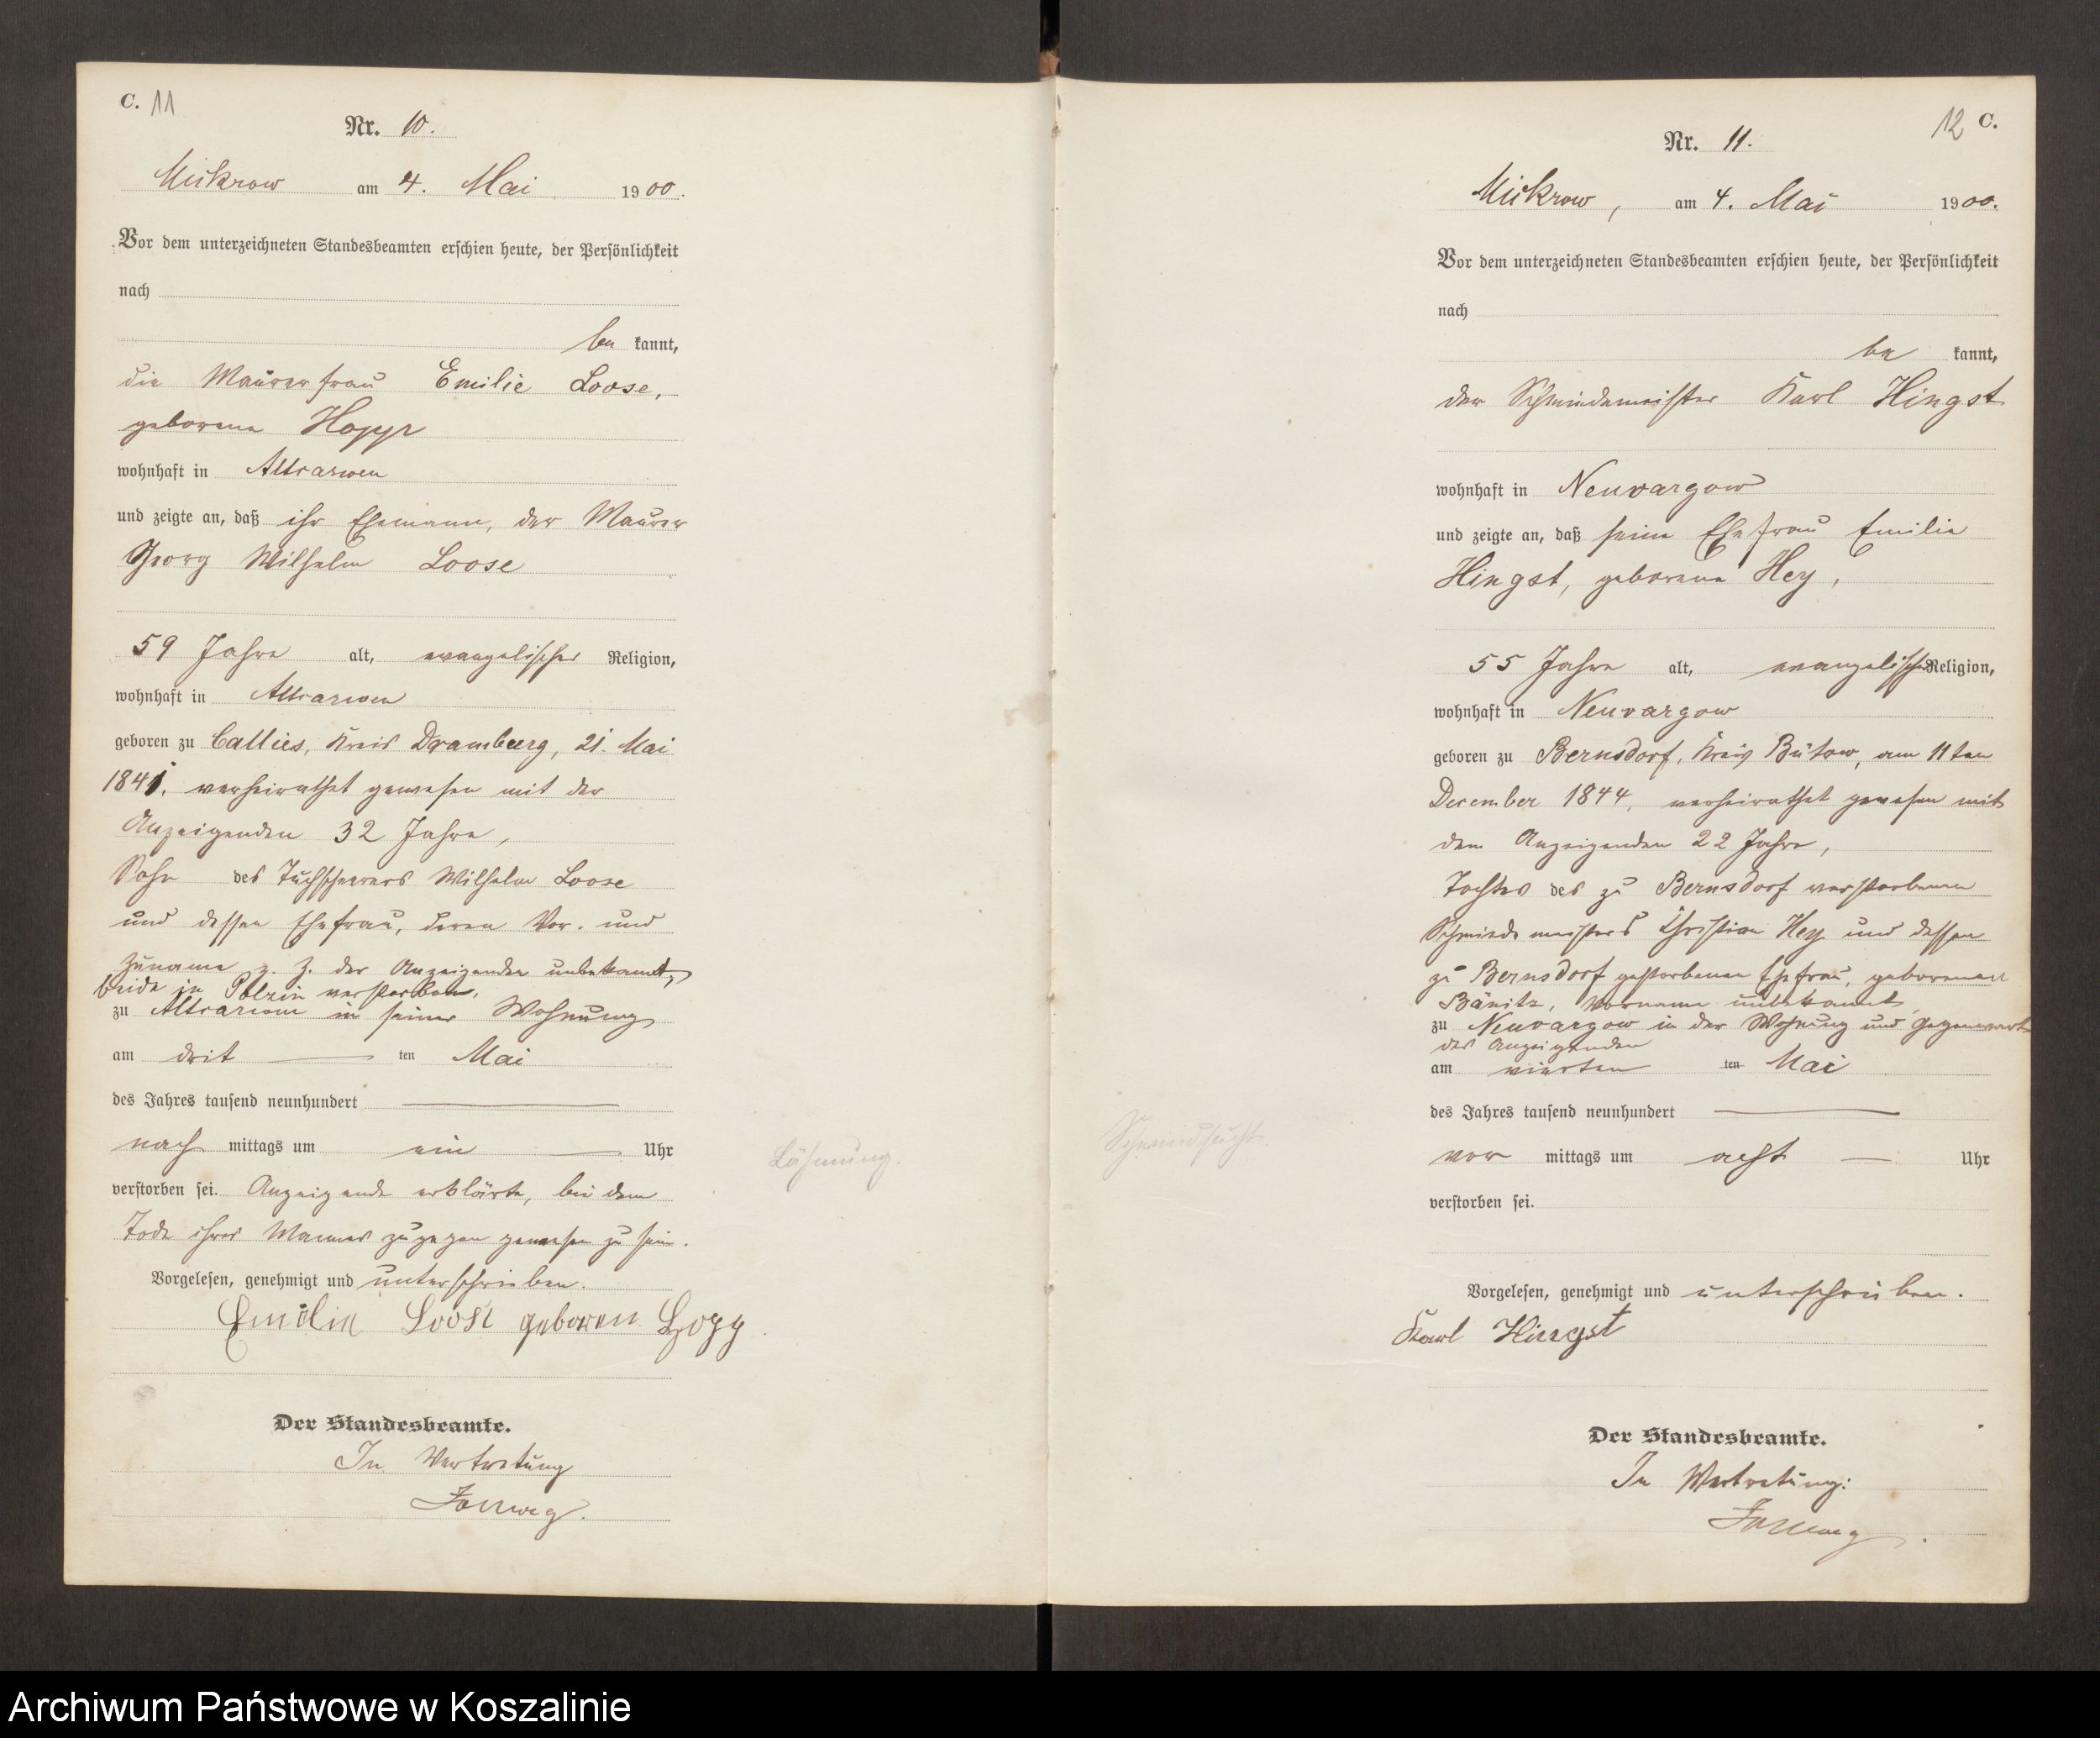 C. 11
Nr. 10.
Mickrow am 4. Mai 1900.
Vor dem unterzeichneten Standesbeamten erschien heute, der Persönlichkeit
nach
be kannt,
die Maurerfrau Emilie Loose,
geborene Hopp
wohnhaft in Altrarwen
und zeigte an, daß ihr Ehemann, der Maurer
Georg Wilhelm Loose
59 Jahre alt, evangelischer Religion,
wohnhaft in Altrarwen
geboren zu Callies, Kreis Dramburg, 21. Mai
1841, verheirathet gewesen mit der
Anzeigenden 32 Jahre,
Sohn des Tuchscheerers Wilhelm Loose
und dessen Ehefrau, deren Vor- und
Zuname z. Z. der Anzeigenden unbekannt,
beide in Polzin verstorben,
zu Altrarwen in seiner Wohnung
am drit ten Mai
des Jahres tausend neunhundert
nach mittags um ein Uhr
verstorben sei. Anzeigende erklärte, bei dem
Tode ihres Mannes zugegen gewesen zu sein.
Vorgelesen, genehmigt und unterschrieben.
Emilie Loose geboren Hopp
Der Standesbeamte.
In Vertretung
Lähmung.
12 C.
Nr. 11.
Mickrow, am 4. Mai 1900.
Vor dem unterzeichneten Standesbeamten erschien heute, der Persönlichkeit
nach
be kannt,
der Schmiedemeister Karl Hingst
wohnhaft in Neuvargow
und zeigte an, daß seine Ehefrau Emilie
Hingst, geborene Hey,
55 Jahre alt, evangelischer Religion,
wohnhaft in Neuvargow
geboren zu Bernsdorf, Kreis Bütow, am 11ten
December 1844, verheirathet gewesen mit
dem Anzeigenden 22 Jahre,
Tochter des zu Bernsdorf verstorbenen
Schmiedemeisters Christian Hey und dessen
zu Bernsdorf gestorbenen Ehefrau, geborenen
Bänitz, Vorname unbekannt,
zu Neuvargow in der Wohnung und Gegenwart
des Anzeigenden
am vierten ten Mai
des Jahres tausend neunhundert
vor mittags um acht Uhr
verstorben sei.
Schwindsucht.
Vorgelesen, genehmigt und unterschrieben.
Karl Hingst
Der Standesbeamte.
In Vertretung:
Archiwum Państwowe w Koszalinie